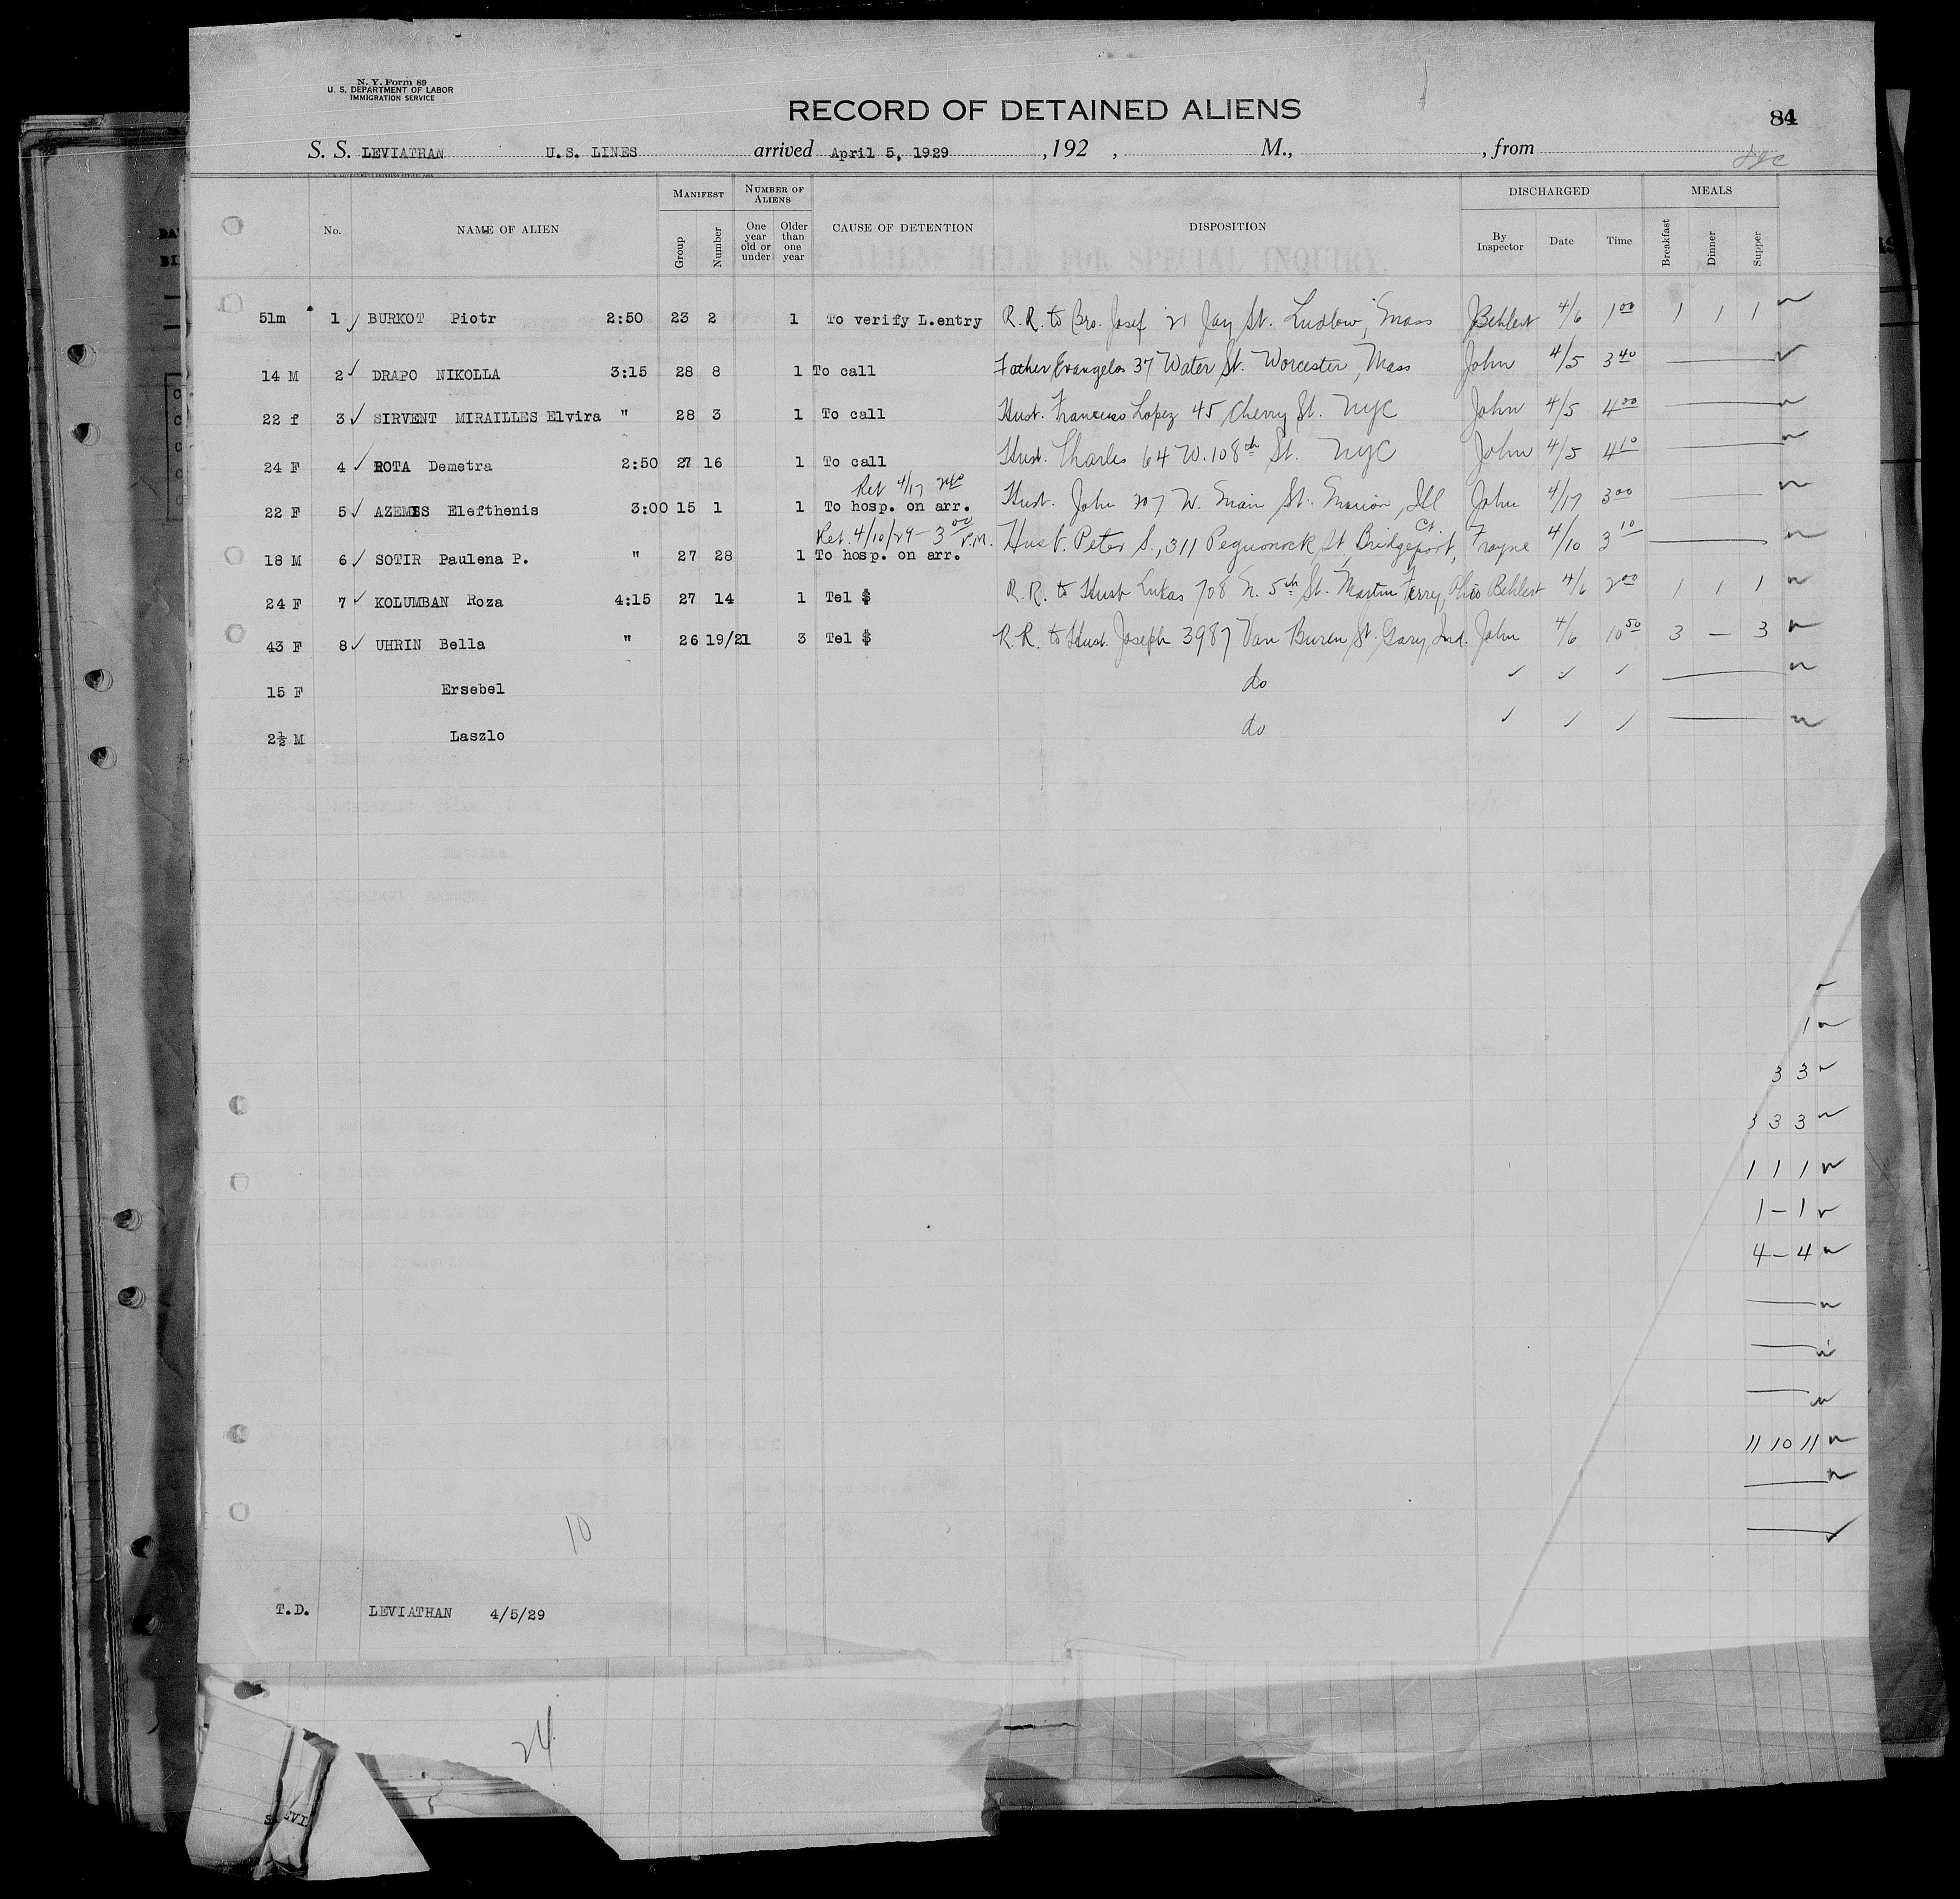 N. Y. Form 89
U. S. DEPARTMENT OF LABOR
IMMIGRATION SERVICE
RECORD OF DETAINED ALIENS
84
S. S. LEVIATHAN U.S. LINES arrived April 5, 1929 , 192 , M., , from
No. NAME OF ALIEN MANIFEST Group Number NUMBER OF ALIENS One year old or under Older than one year CAUSE OF DETENTION DISPOSITION DISCHARGED By Inspector Date Time MEALS Breakfast Dinner Supper
51m 1 ✓ BURKOT Piotr 2:50 23 2 1 To verify L.entry R.R. to Bro. Josef 21 Jay St. Ludlow, Mass Behlert 4/6 1 00 1 1 1
14 M 2 ✓ DRAPO NIKOLLA 3:15 28 8 1 To call Father Evangelos 37 Water St. Worcester, Mass John 4/5 3 40 —
22 f 3 ✓ SIRVENT MIRAILLES Elvira " 28 3 1 To call Husb. Francisco Lopez 45 Cherry St. NYC John 4/5 4 00 —
24 F 4 ✓ ROTA Demetra 2:50 27 16 1 To call Husb. Charles 64 W. 108th St. NYC John 4/5 4 10 —
Ret 4/17
22 F 5 ✓ AZEMIS Elefthenis 3:00 15 1 1 To hosp. on arr. Husb. John 207 W. Main St. Marion, Ill John 4/17 3 00 —
Ret. 4/10/29 – 3 00 P.M.
18 M 6 ✓ SOTIR Paulena P. " 27 28 1 To hosp. on arr. Husb. Peter S., 311 Pequonock St, Bridgeport, Ct. Frayne 4/10 3 10 —
24 F 7 ✓ KOLUMBAN Roza 4:15 27 14 1 Tel $ R.R. to Husb Lukas 708 N. 5th St. Martin Ferry, Ohio Behlert 4/6 2 00 1 1 1
43 F 8 ✓ UHRIN Bella " 26 19/21 3 Tel $ R.R. to Husb. Joseph 3987 Van Buren St. Gary, Ind. John 4/6 10 50 3 — 3
15 F Ersebel do ✓ ✓ ✓ —
2½ M Laszlo do ✓ ✓ ✓ —
1
3 3
3 3 3
1 1 1
1 – 1
4 – 4
11 10 11
10
T.D. LEVIATHAN 4/5/29
24